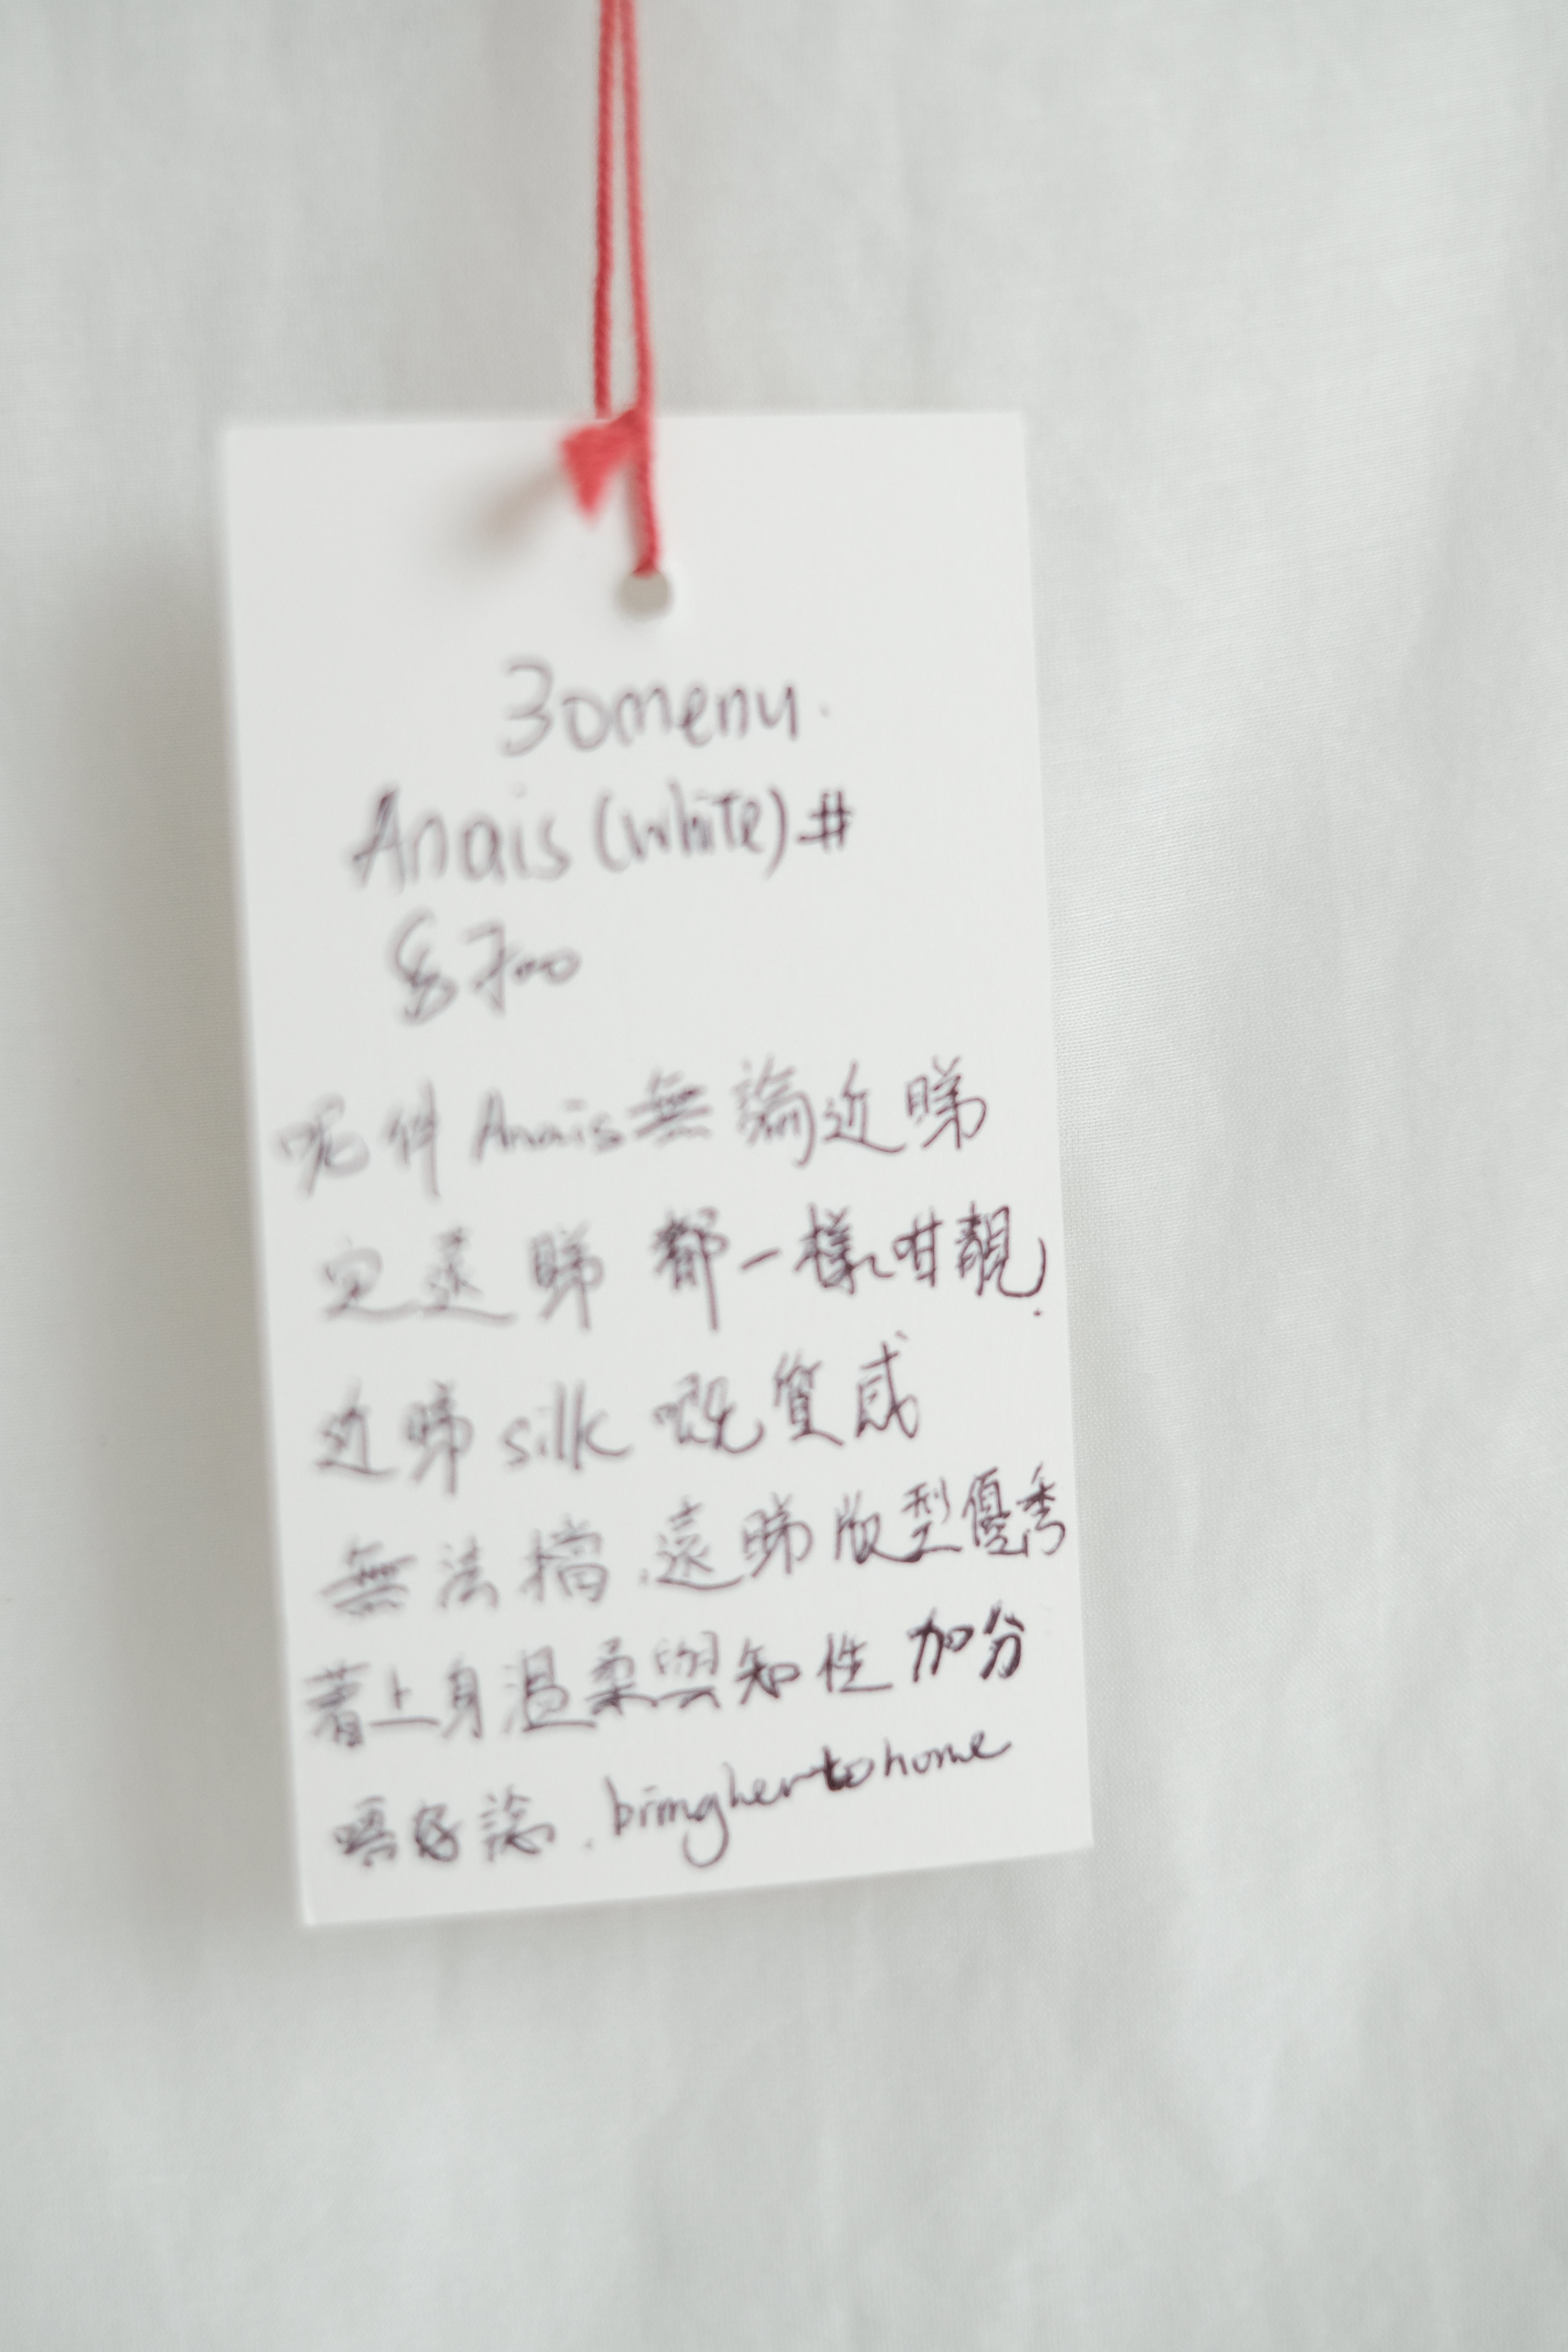 30menu.
Anais (white) #
$700
呢件 Anais 無論近睇
定遠睇 都一樣咁靚.
近睇 silk 嘅質感
無法擋.遠睇版型優秀
著上身溫柔與知性加分
唔好諗.bringhertohome